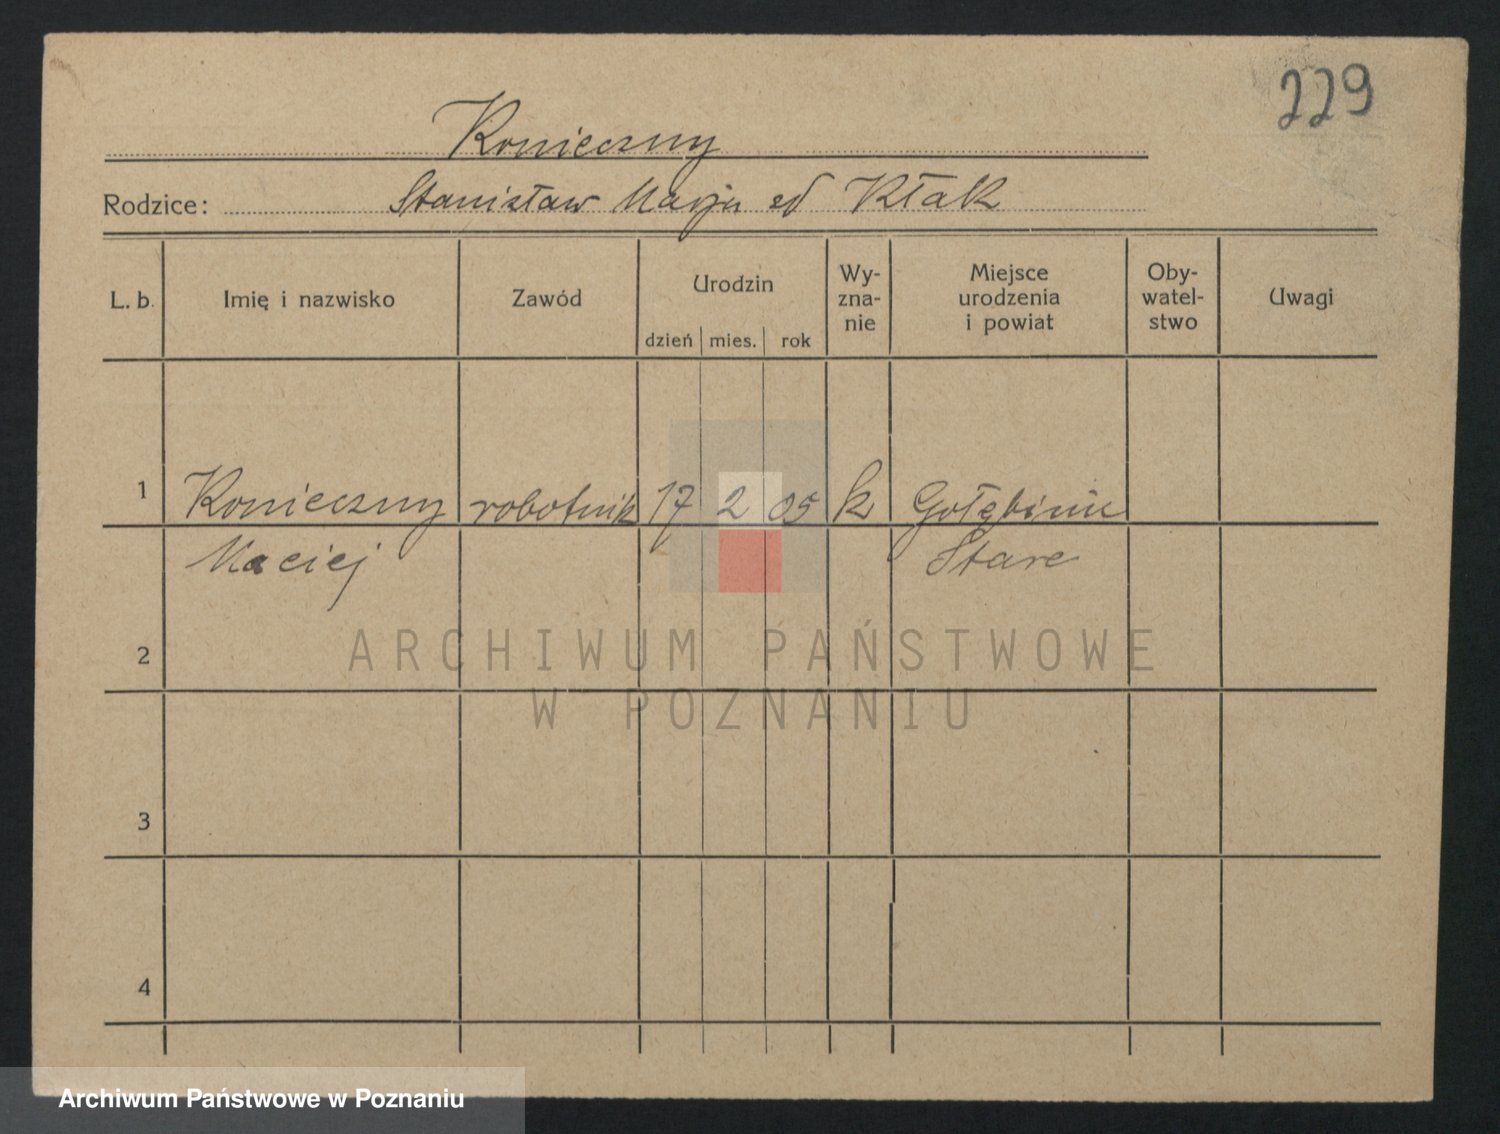 229
Konieczny
Rodzice: Stanisław Marja zd Kłak
L. b.
Imię i nazwisko
Zawód
Urodzin
dzień mies. rok
Wy-
zna-
nie
Miejsce
urodzenia
i powiat
Oby-
watel-
stwo
Uwagi
1 Konieczny robotnik 17 2 05 k Gołębin
Maciej Stare
2
3
4
ARCHIWUM PAŃSTWOWE
W POZNANIU
Archiwum Państwowe w Poznaniu